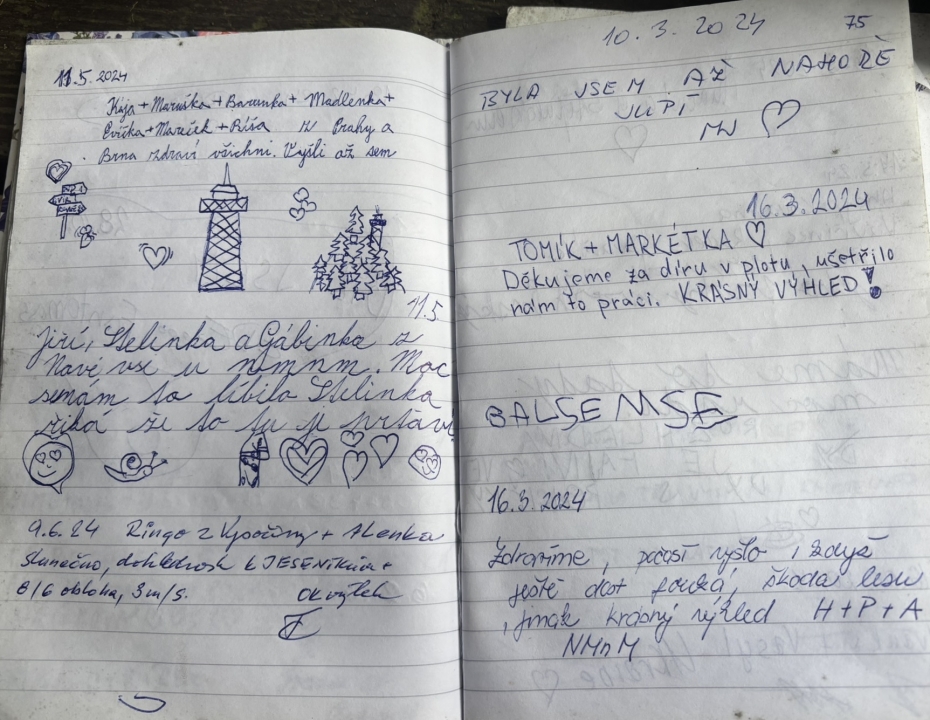 11.5.2024
Kája + Maruška + Barunka + Madlenka +
Evička + Mareček + Ríša z Prahy a
Brna zdraví všichni. Vyšli až sem
11.5
Jiří, Stelinka a Gábinka z
Nové vsi u nmnm. Moc
semám to líbilo Stelinka
říká že to tu je
9.6.24 Ringo z Vysočiny + Alenka
slunečno, dohlednost k JESENÍKŮM +
8/6 obloha, 3m/s.
10.3.2024
75
BYLA JSEM AŽ NAHOŘE
JUPÍ
16.3.2024
TOMÍK + MARKÉTKA
Děkujeme za díru v plotu, ušetřilo
nám to práci. KRÁSNÝ VÝHLED!
BALSEMSE
16.3.2024
Zdravíme, počasí vyšlo, i když
ještě dost fouká, škoda lesu
, jinak krásný výhled H+P+A
NMnM